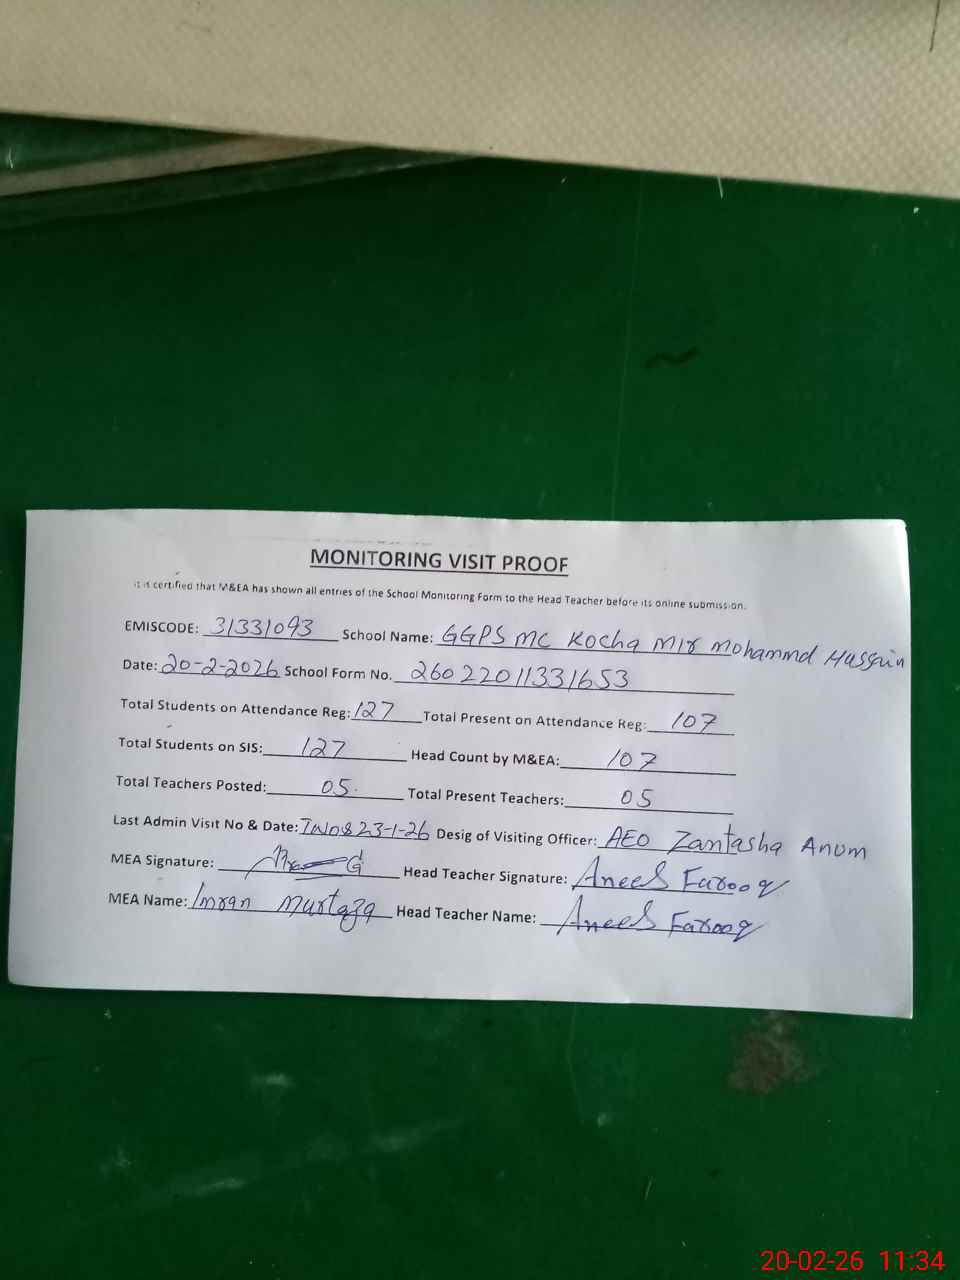 MONITORING VISIT PROOF
It is certified that M&EA has shown all entries of the School Monitoring Form to the Head Teacher before its online submission.
EMISCODE: 31331093 School Name: GGPS MC Kocha Mir Mohammd Hussain
Date: 20-2-2026 School Form No. 26022011331653
Total Students on Attendance Reg: 127 Total Present on Attendance Reg: 107
Total Students on SIS: 127 Head Count by M&EA: 107
Total Teachers Posted: 05 Total Present Teachers: 05
Last Admin Visit No & Date: Two & 23-1-26 Desig of Visiting Officer: AEO Zantasha Anum
MEA Signature: Head Teacher Signature: Anees Farooq
MEA Name: Imran Murtaza Head Teacher Name: Anees Farooq
20-02-26 11:34